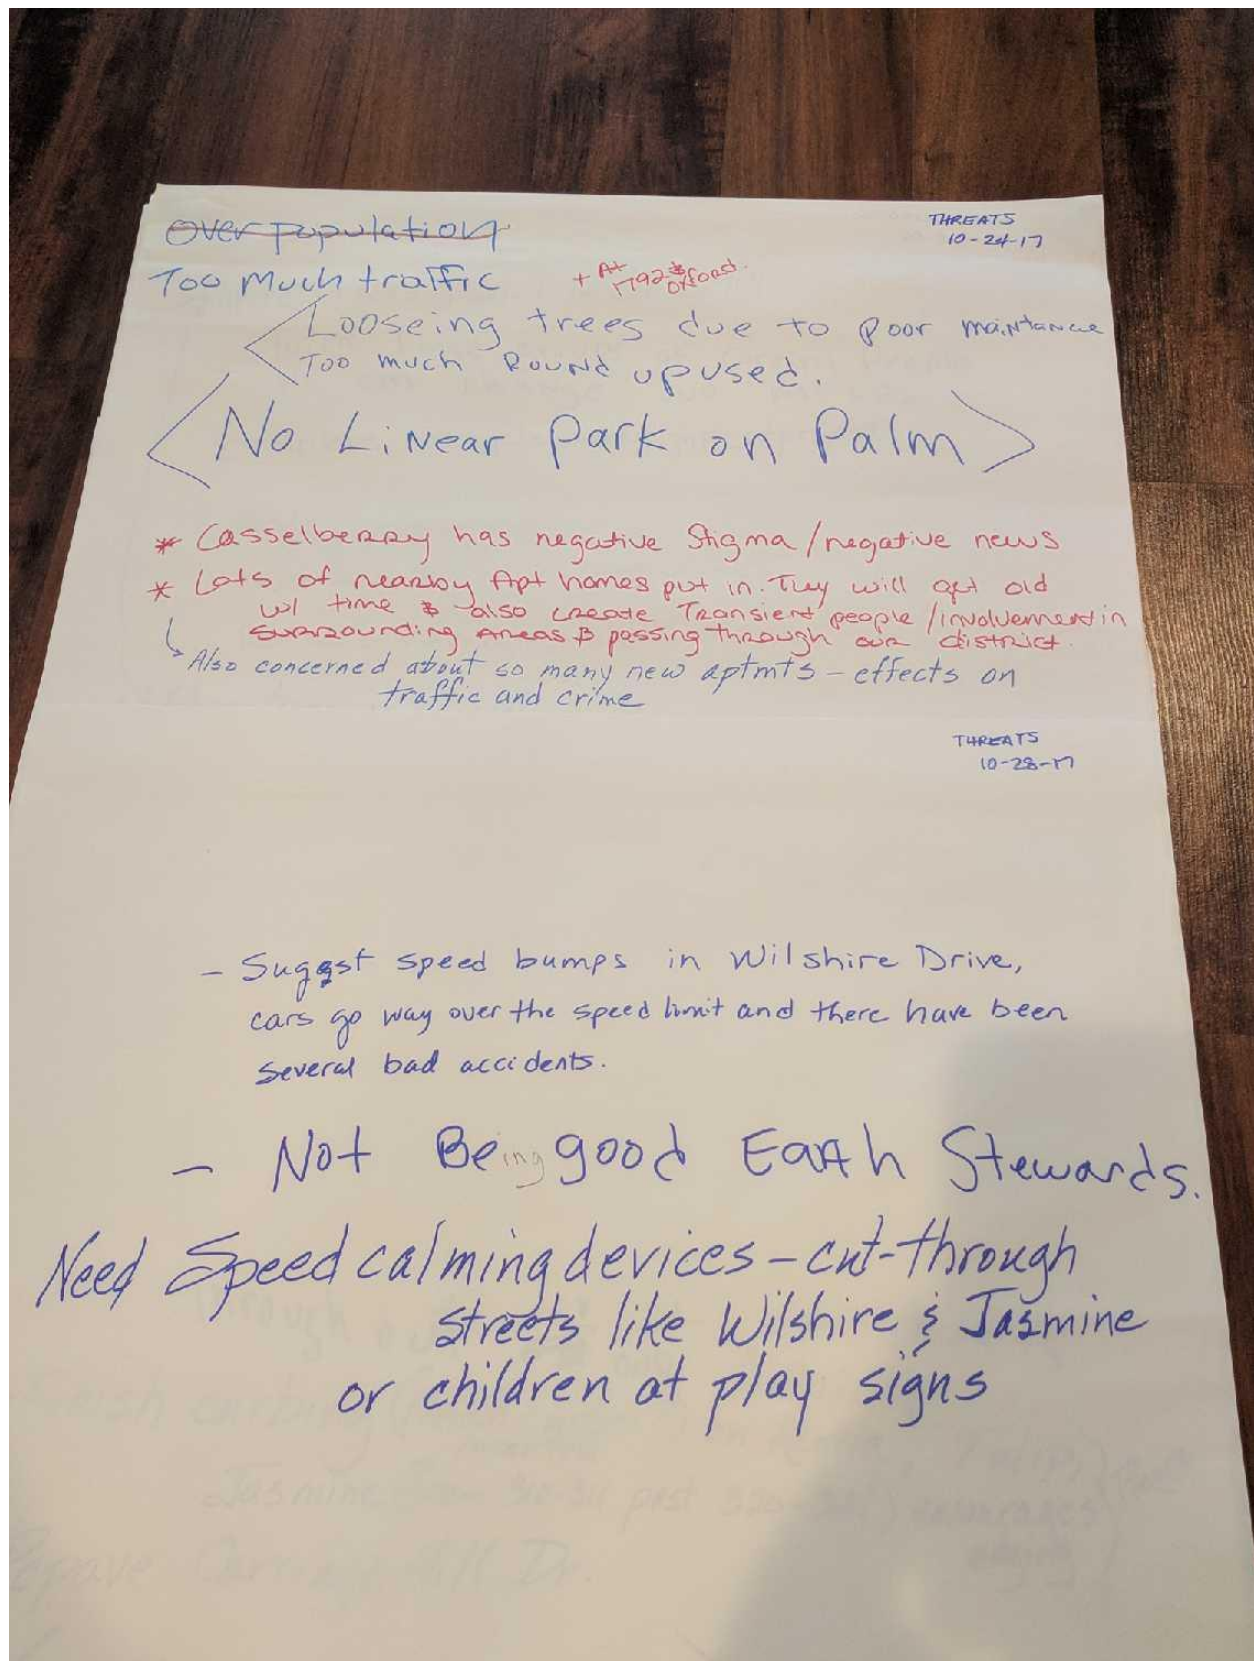 Over population
THREATS
10-24-17
Too Much traffic
+ At 1792 & Oxford.
Looseing trees due to Poor maintance
Too much Round up used.
No Linear Park on Palm
* Casselberry has negative Stigma/negative news
* Lots of nearby Apt homes put in. They will get old
w/ time & also create Transient people/involvement in
surrounding areas & passing through our district.
Also concerned about so many new aptmts - effects on
traffic and crime
THREATS
10-28-17
- Suggest speed bumps in Wilshire Drive,
cars go way over the speed limit and there have been
several bad accidents.
- Not Being good Earth Stewards.
Need Speed calming devices - cut-through
streets like Wilshire & Jasmine
or children at play signs